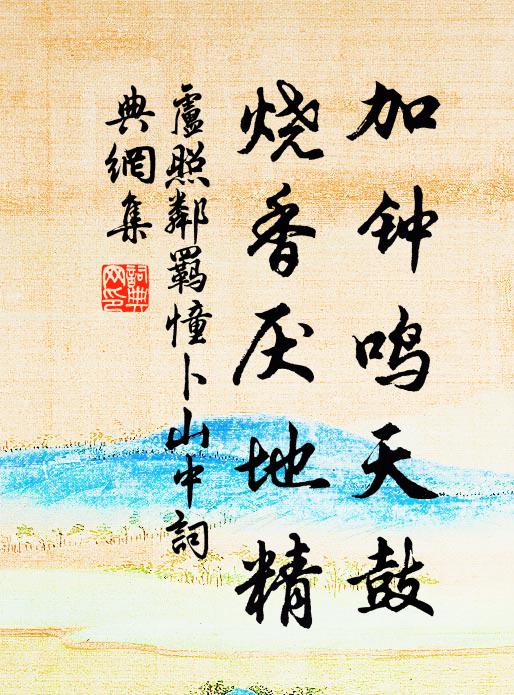 加钟鸣天鼓
烧香厌地精
盧照鄰羁憧卜山中詞
典網集
詞典网印